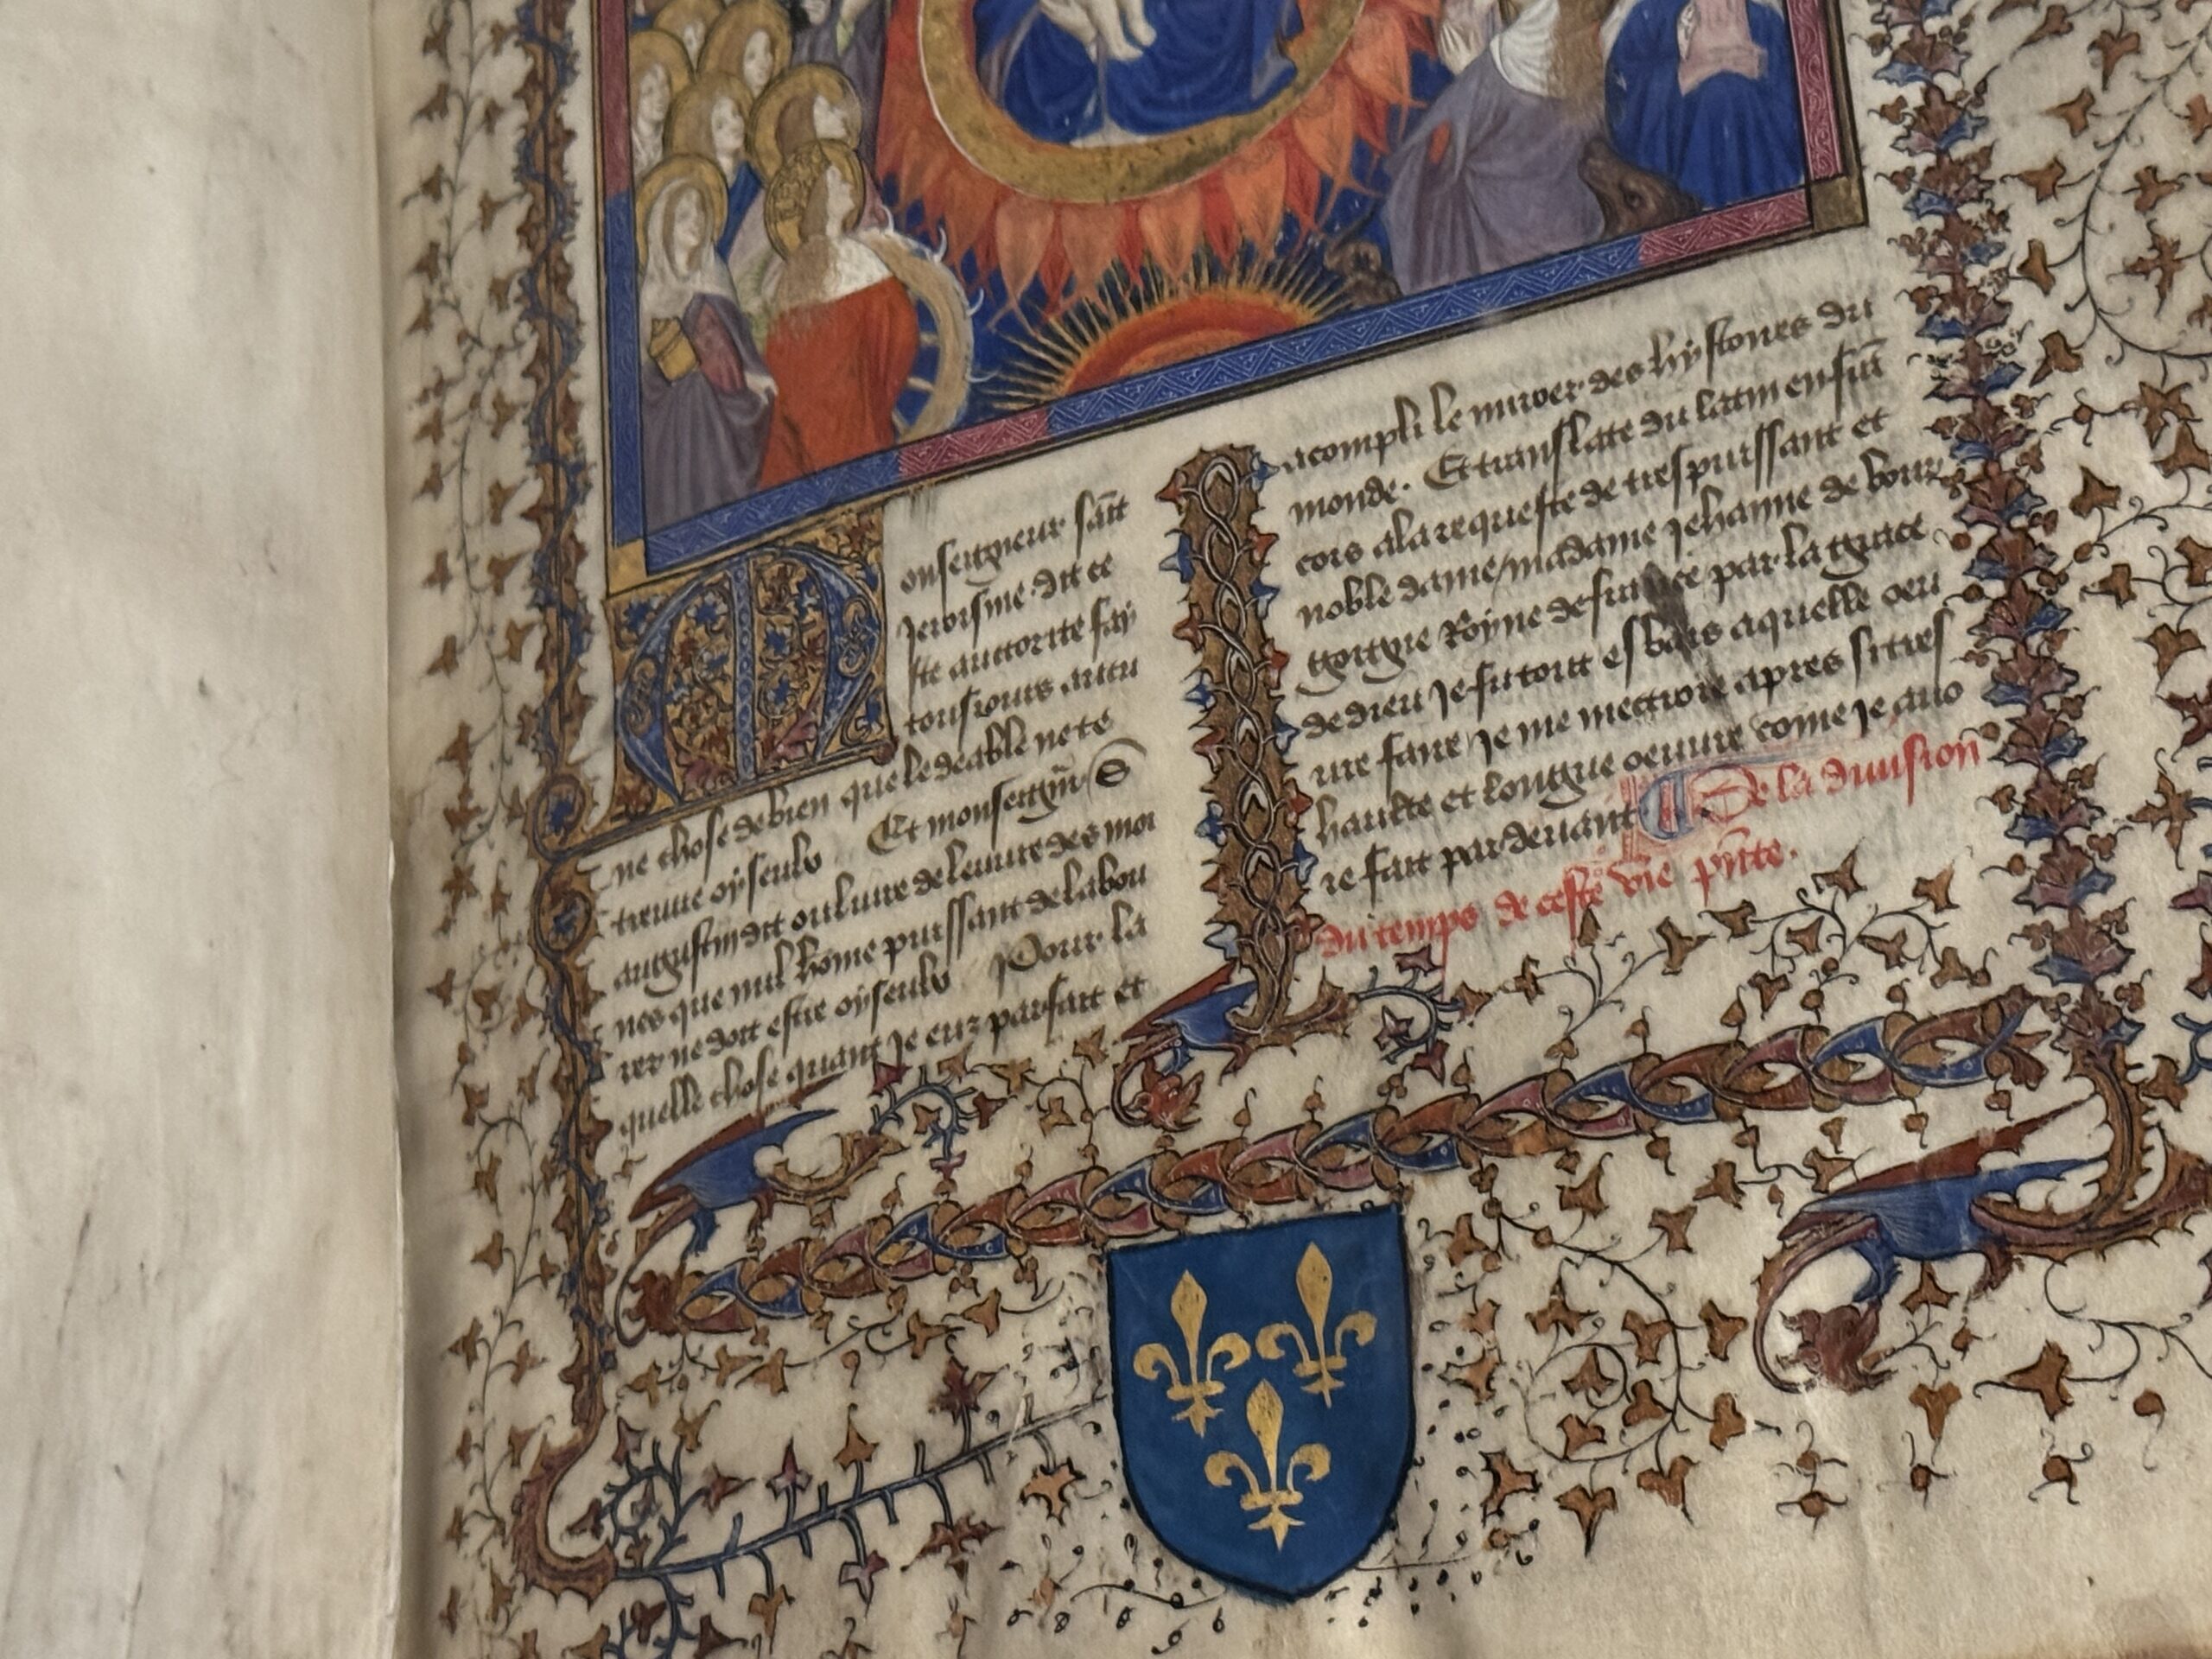 Monseigneur saīt
Jeroisme dit ce
ste auctorite fay
tousiours aucu
ne chose de bien que le deable ne te
treuve oyseulx Et monseignr̄ S
augustin dit ou livre de leuvre des moi
nes que nul home puissant de labou
rer ne doit estre oyseulx Pour la
quelle chose quant Je euz parfait et
acompli le miroer des hystoires du
monde. Et translate du latin en frā
cois a la requeste de tres puissant et
noble dame madame Jehanne de bour
goigne Royne de france par la grace
de dieu Je fu tout esbais a quelle oeu
vre faire Je me mectroie apres si tres
haulte et longue oeuvre come Je avo
ie fait par devant ¶ De la division
du temps de ceste vie pn̄te.